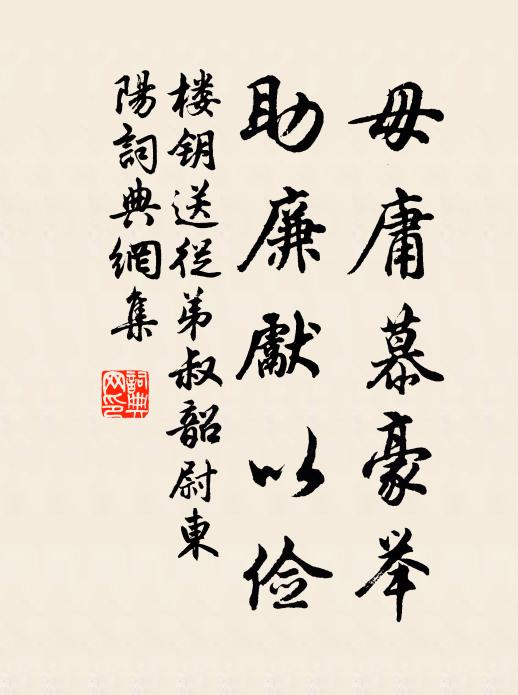 毋庸慕豪举
助廉献以俭
楼钥送從弟叔韶尉東
陽詞典網集
詞典
网印